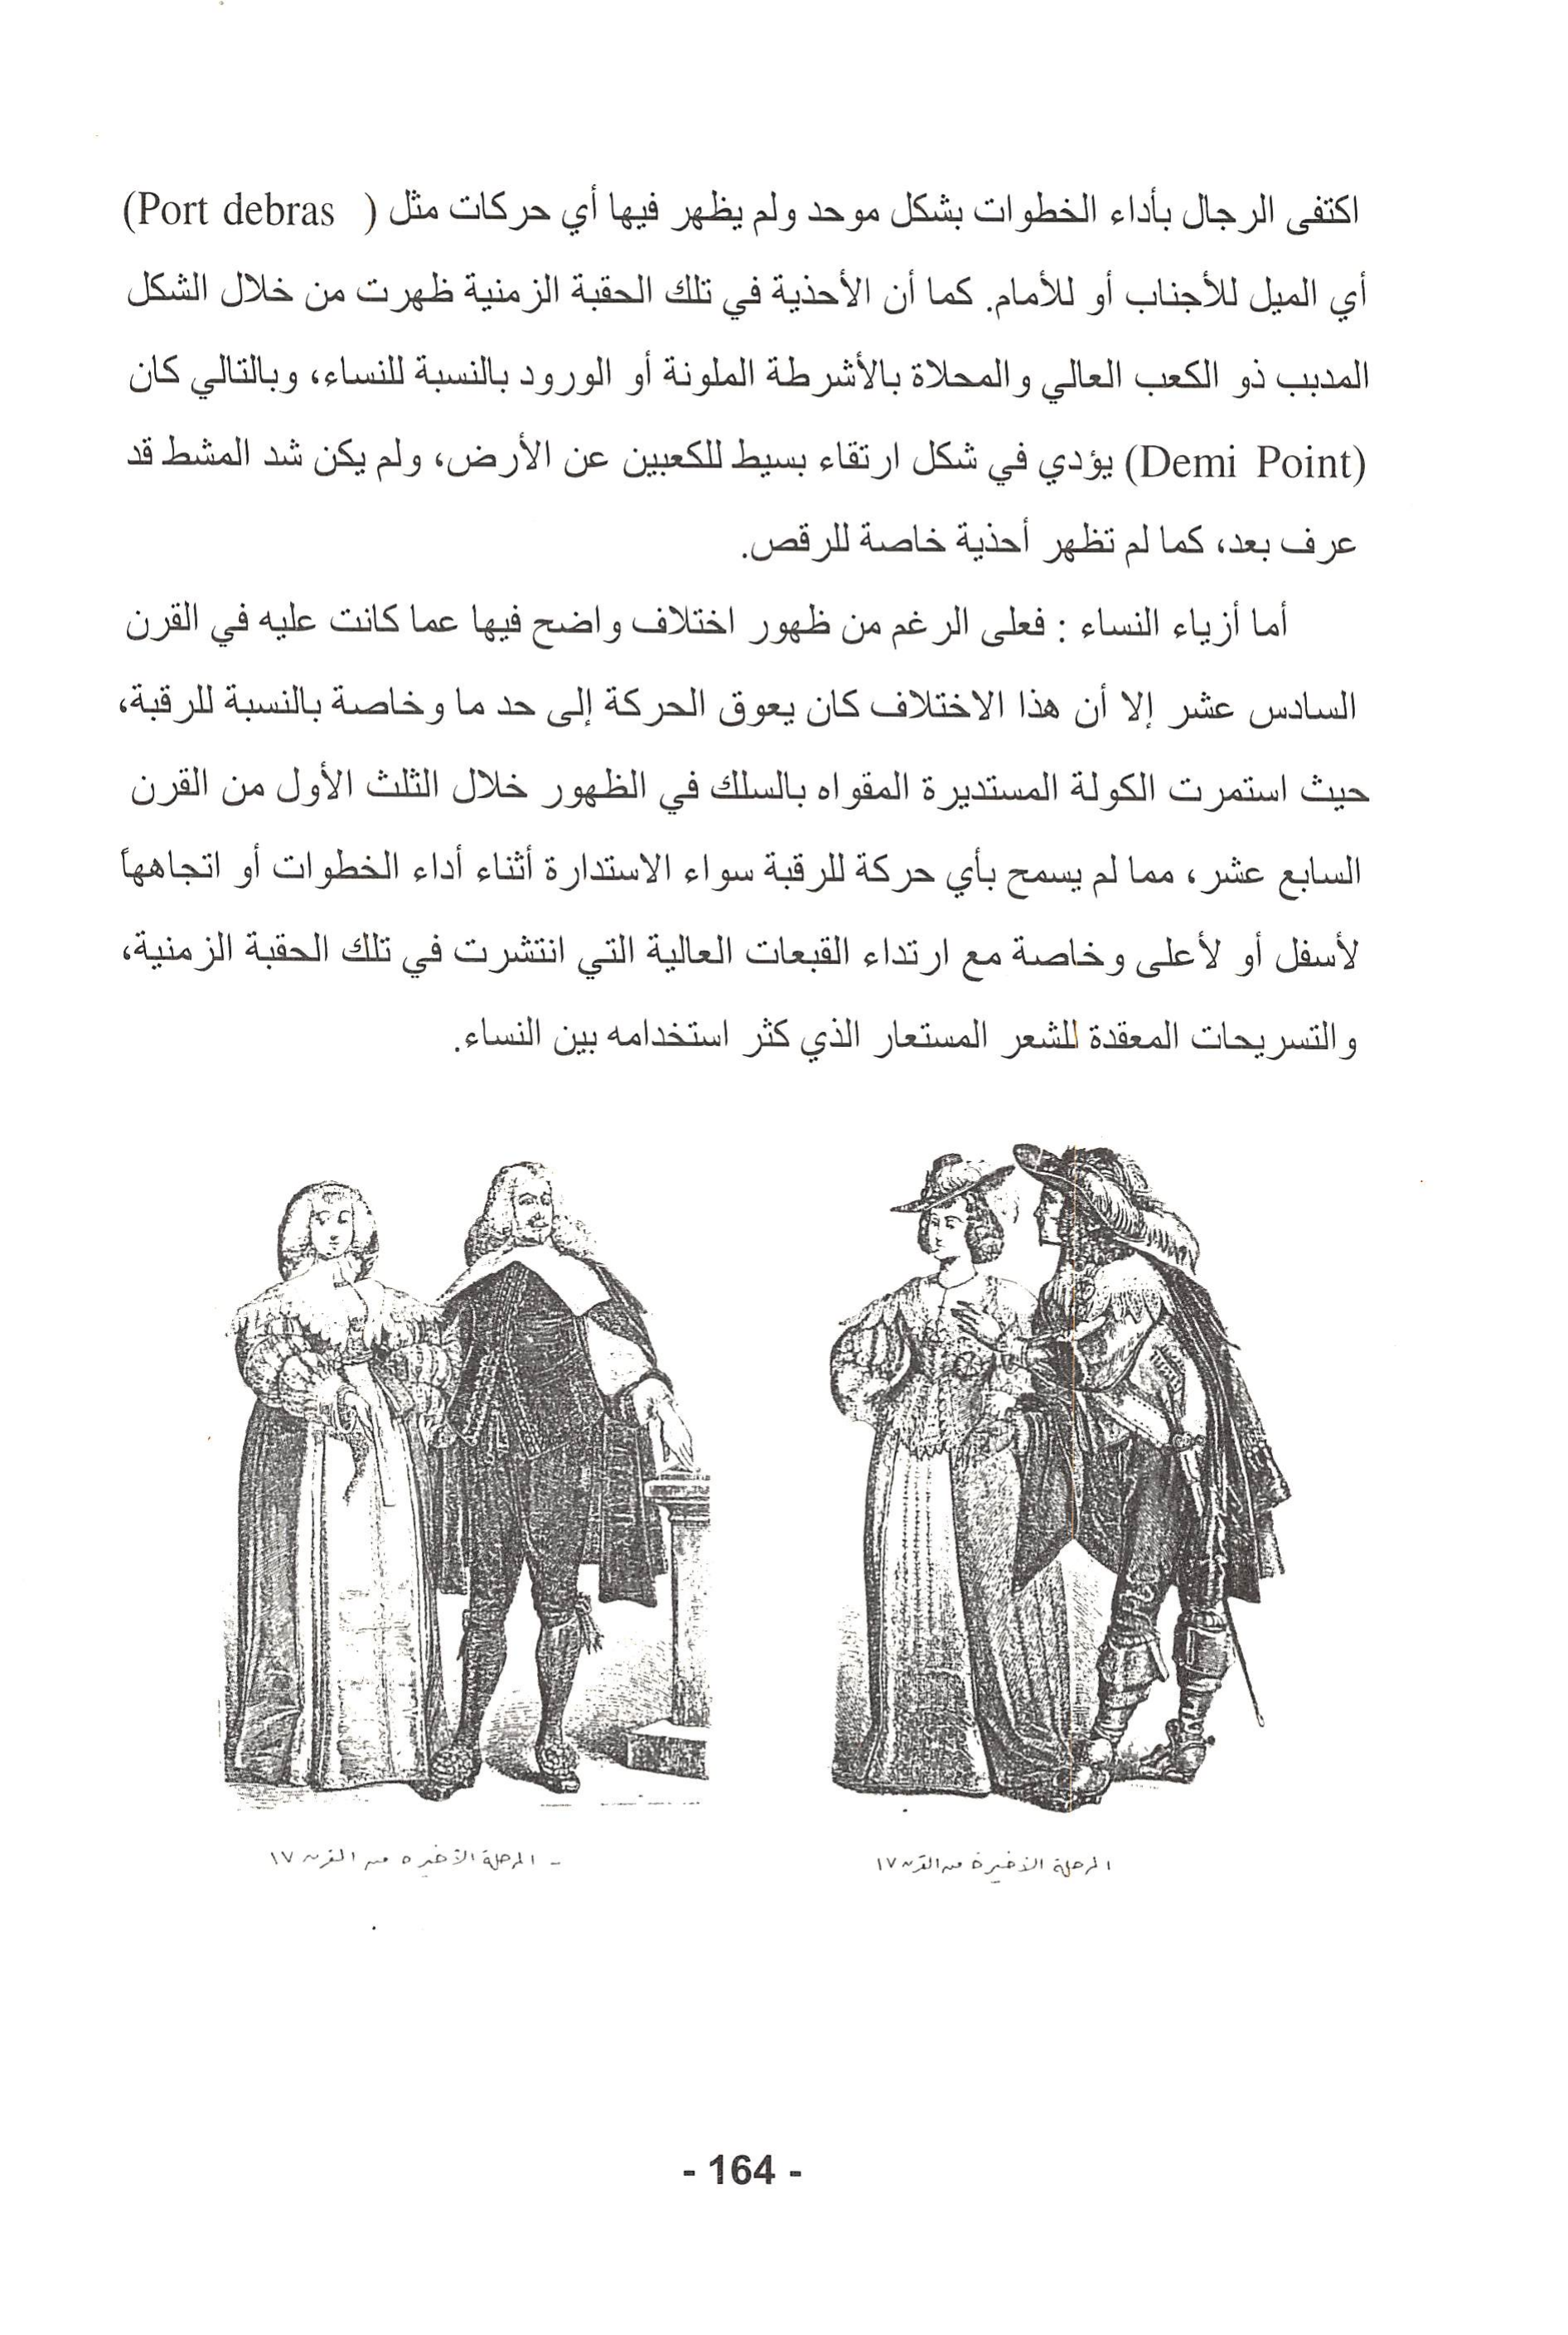 اكتفى الرجال بأداء الخطوات بشكل موحد ولم يظهر فيها أي حركات مثل (Port debras)
أي الميل للأجناب أو للأمام. كما أن الأحذية في تلك الحقبة الزمنية ظهرت من خلال الشكل
المدبب ذو الكعب العالي والمحلاة بالأشرطة الملونة أو الورود بالنسبة للنساء، وبالتالي كان
(Demi Point) يؤدي في شكل ارتقاء بسيط للكعبين عن الأرض، ولم يكن شد المشط قد
عرف بعد، كما لم تظهر أحذية خاصة للرقص.
أما أزياء النساء : فعلى الرغم من ظهور اختلاف واضح فيها عما كانت عليه في القرن
السادس عشر إلا أن هذا الاختلاف كان يعوق الحركة إلى حد ما وخاصة بالنسبة للرقبة،
حيث استمرت الكولة المستديرة المقواه بالسلك في الظهور خلال الثلث الأول من القرن
السابع عشر، مما لم يسمح بأي حركة للرقبة سواء الاستدارة أثناء أداء الخطوات أو اتجاههاً
لأسفل أو لأعلى وخاصة مع ارتداء القبعات العالية التي انتشرت في تلك الحقبة الزمنية،
والتسريحات المعقدة للشعر المستعار الذي كثر استخدامه بين النساء.
المرحلة الأخيرة من القرن ١٧
- المرحلة الأخيره من القرن ١٧
- 164 -